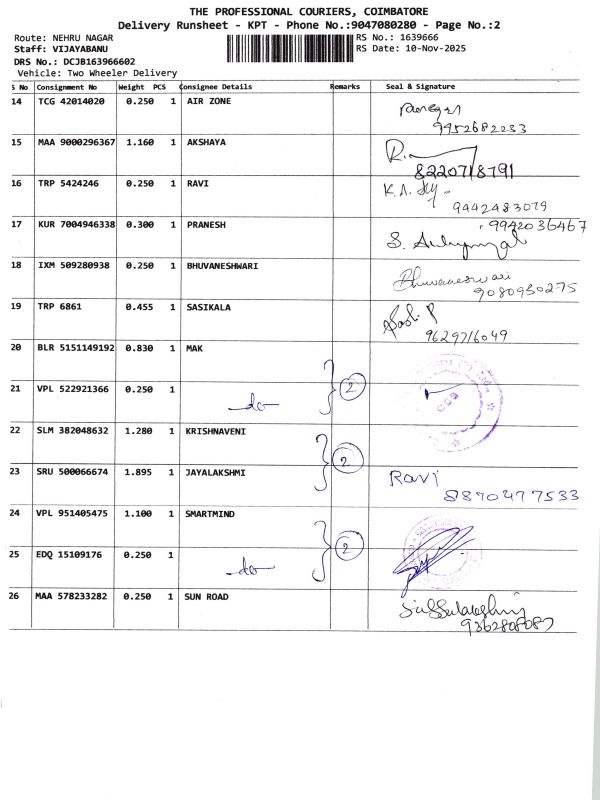 THE PROFESSIONAL COURIERS, COIMBATORE
Delivery Runsheet - KPT - Phone No.:9047080280 - Page No.:2
Route: NEHRU NAGAR RS No.: 1639666
Staff: VIJAYABANU RS Date: 10-Nov-2025
DRS No.: DCJB163966602
Vehicle: Two Wheeler Delivery
S No Consignment No Weight PCS Consignee Details Remarks Seal & Signature
14 TCG 42014020 0.250 1 AIR ZONE
9952682233
15 MAA 9000296367 1.160 1 AKSHAYA
8220718791
16 TRP 5424246 0.250 1 RAVI
9442483079
17 KUR 7004946338 0.300 1 PRANESH 9942036467
18 IXM 509280938 0.250 1 BHUVANESHWARI
Bhuvaneswari
9080950275
19 TRP 6861 0.455 1 SASIKALA
9629716049
20 BLR 5151149192 0.830 1 MAK
2
21 VPL 522921366 0.250 1
-do-
22 SLM 382048632 1.280 1 KRISHNAVENI
2
23 SRU 500066674 1.895 1 JAYALAKSHMI Ravi
8870477533
24 VPL 951405475 1.100 1 SMARTMIND
2
25 EDQ 15109176 0.250 1
-do-
26 MAA 578233282 0.250 1 SUN ROAD